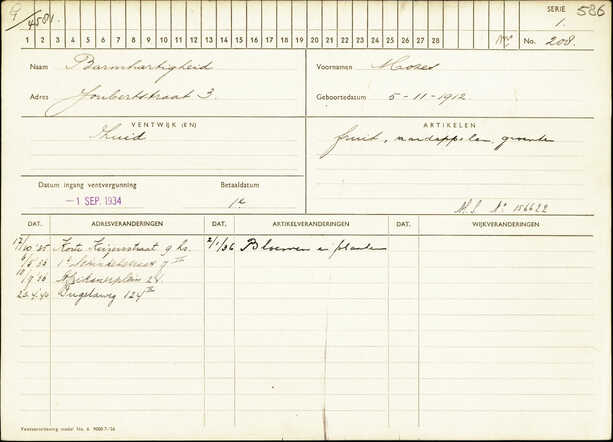 9/4581.
SERIE 586
1.
1 2 3 4 5 6 7 8 9 10 11 12 13 14 15 16 17 18 19 20 21 22 23 24 25 26 27 28 No. 208.
Naam Barmhartigheid Voornamen Mozes
Adres Joubertstraat 3. Geboortedatum 5-11-1912
VENTWIJK (EN) ARTIKELEN
Zuid fruit, aardappelen, groenten
Datum ingang ventvergunning Betaaldatum
-1 SEP. 1934 M.S. No 156622
DAT. ADRESVERANDERINGEN DAT. ARTIKELVERANDERINGEN DAT. WIJKVERANDERINGEN
12/10 '35 Korte Keizersstraat 9 hs. 2/1/36 Bloemen en planten
Afrikanerplein 24
23.4.40 Tugelaweg 124 II
Ventverordening model No. 6 9000-7-'36